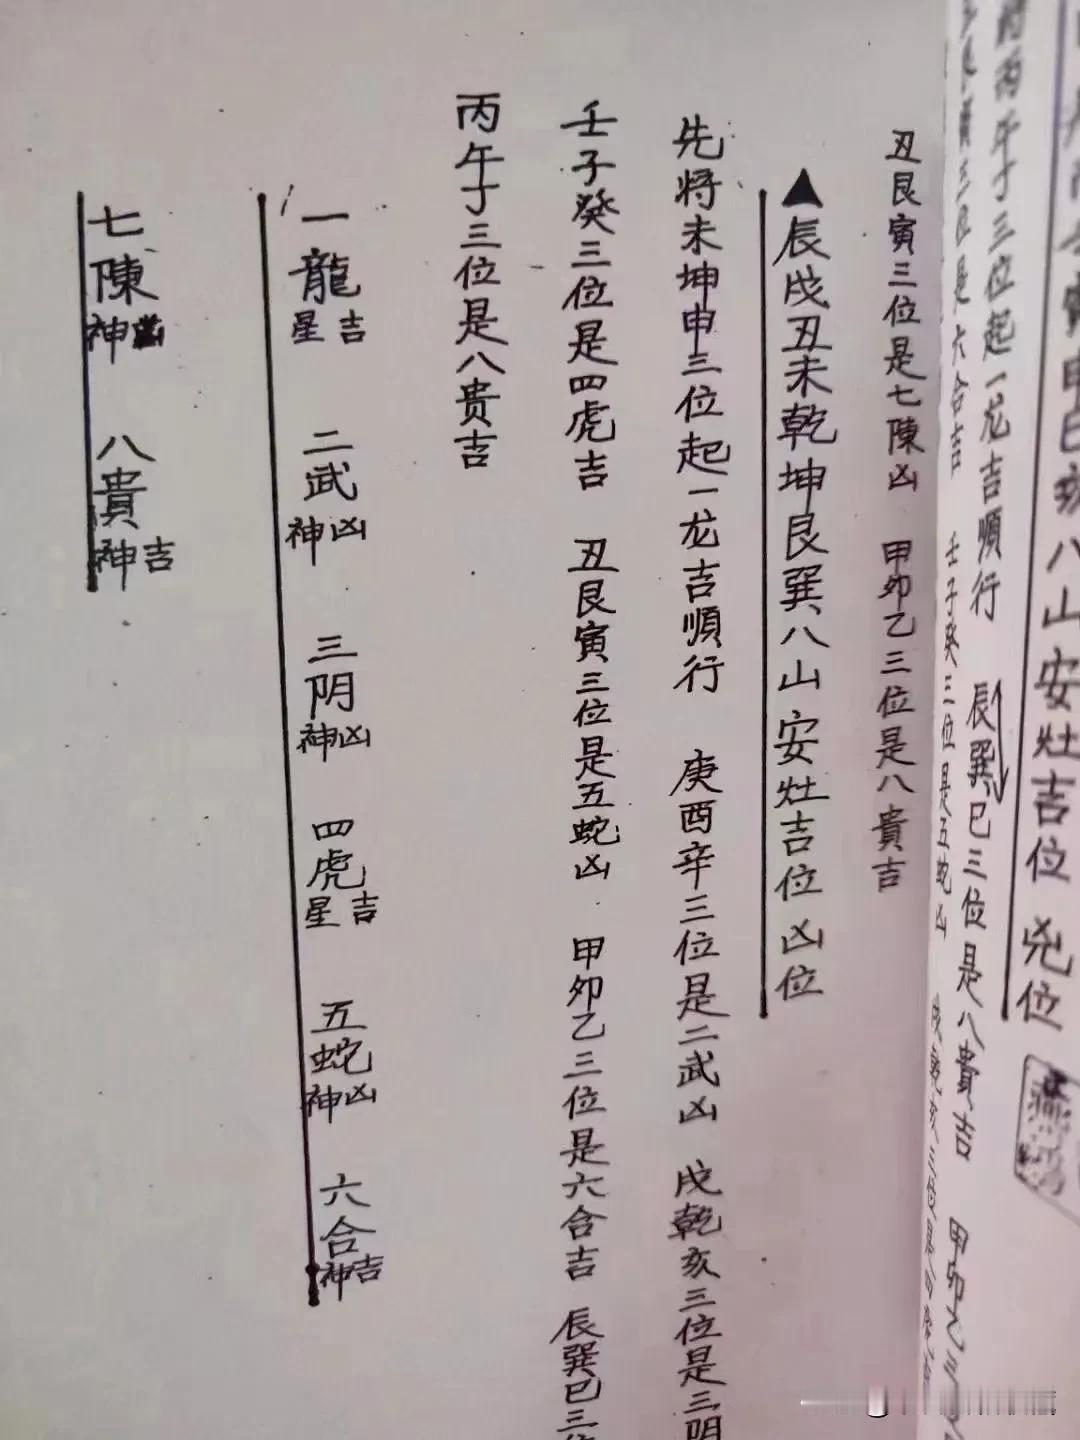 八山安灶吉位 兇位
三位起一龙吉順行 辰巽巳三位是八貴吉 甲卯乙三
是六合吉 壬子癸三位是五蛇凶
丑艮寅三位是七陳凶 甲卯乙三位是八貴吉
▲辰戌丑未乾坤艮巽八山安灶吉位凶位
先将未坤申三位起一龙吉順行 庚酉辛三位是二武凶 戌乾亥三位是三阴
壬子癸三位是四虎吉 丑艮寅三位是五蛇凶 甲卯乙三位是六合吉 辰巽巳三位
丙午丁三位是八贵吉
一龍星吉 二武神凶 三阴神凶 四虎星吉 五蛇神凶 六合神吉
七陳神凶 八貴神吉